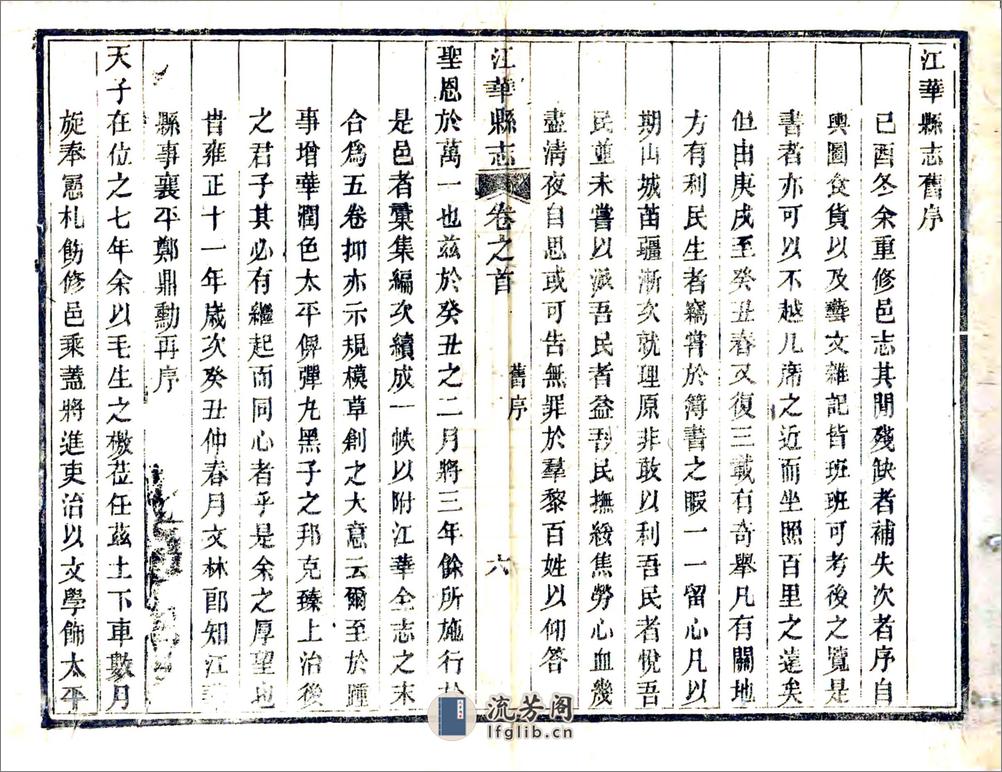 江華縣志舊序
己酉冬余重修邑志其間殘缺者補失次者序自
輿圖食貨以及藝文雜記皆班班可考後之覽是
書者亦可以不越几席之近而坐照百里之遠矣
但由庚戌至癸丑春又復三載有奇舉凡有關地
方有利民生者竊嘗於簿書之暇一一留心凡以
期山城苗疆漸次就理原非敢以利吾民者悅吾
民並未嘗以派吾民者益吾民撫綏焦勞心血幾
盡清夜自思或可告無罪於羣黎百姓以仰答
江華縣志 卷之首 舊序 六
聖恩於萬一也茲於癸丑之二月將三年餘所施行於
是邑者彙集編次續成一帙以附江華全志之末
合爲五卷抑亦示規模草創之大意云爾至於踵
事增華潤色太平俾彈丸黑子之邦克臻上治後
之君子其必有繼起而同心者乎是余之厚望也
昔雍正十一年歲次癸丑仲春月文林郎知江華
縣事襄平鄭鼎勳再序
天子在位之七年余以毛生之檄莅任茲土下車數月
旋奉憲札飭修邑乘蓋將進吏治以文學飾太平
流芳阁
lfglib.cn